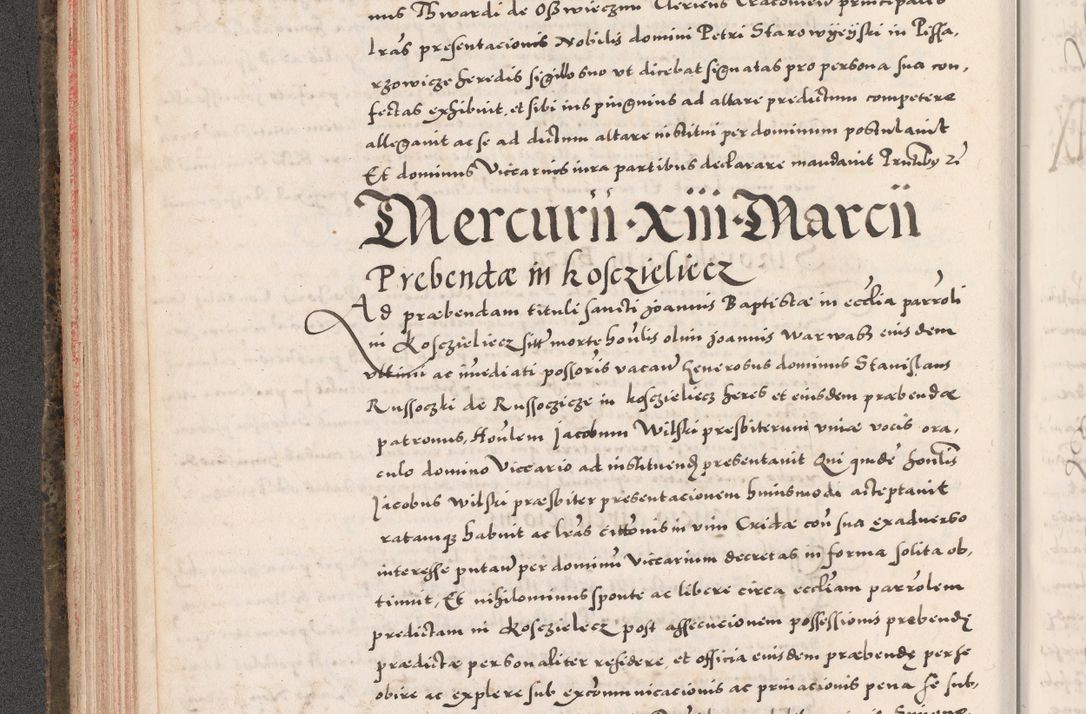 nus Thwardi de Oszwieczim Clericus Cracoviensis principales
lras presentacionis Nobilis domini Petri Starowyeyski in Pissa,
rzowicze heredis sigillo suo ut dicebat signatas pro persona sua con,
fectas exhibuit, et sibi ius pinguius ad altare predictum competere
allegavit ac se ad dictum altare institui per dominum postulavit
Et dominus Vicarius iura partibus declarare mandavit Pntibus
Mercurii · xiii · Marcii
Prebendæ in kosczieliecz
Ad præbendam tituli sancti Joannis Baptistæ in ecclia parroli
in Kosczieliecz sitt morte honlis olim Joannis Warwasz eius dem
ultimi ac imediati possoris vacan Generosus dominus Stanislaus
Russoczki de Russoczicze in kosczieliecz heres et eiusdem præbendæ
patronus, Honlem Jacobum Wilski presbiterum vniæ vocis ora,
culo domino Viccario ad instituend presentavit Qui quidē honlis
Jacobus Wilski præsbiter presentacionem huiusmodi acceptavit
ratamque habuit ac lras cittonis in vim Cridæ con sua exadverso
interesse putan per dominū Viccarium decretas in forma solita ob,
tinuit, Et nihilominus sponte ac libere circa eccliam parrolem
predictam in Kosczielecz post assecucionem possessionis prebendę
prædictæ personaliter residere, et officia eiusdem præbendę perse
obire ac explere sub excommunicacionis ac privacionis pena se sub,